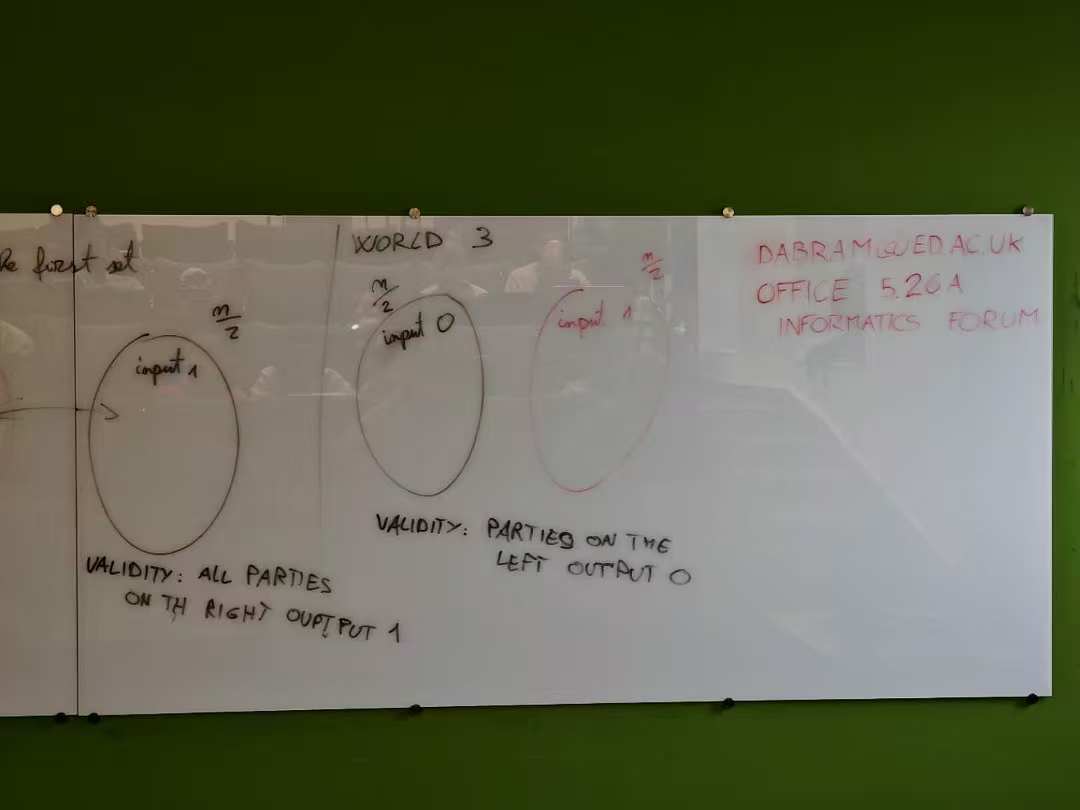 first set
n/2
input 1
VALIDITY: ALL PARTIES
ON TH RIGHT OUPTPUT 1
WORLD 3
n/2
input 0
n/2
input 1
VALIDITY: PARTIES ON THE
LEFT OUTPUT 0
DABRAM@ED.AC.UK
OFFICE 5.26A
INFORMATICS FORUM